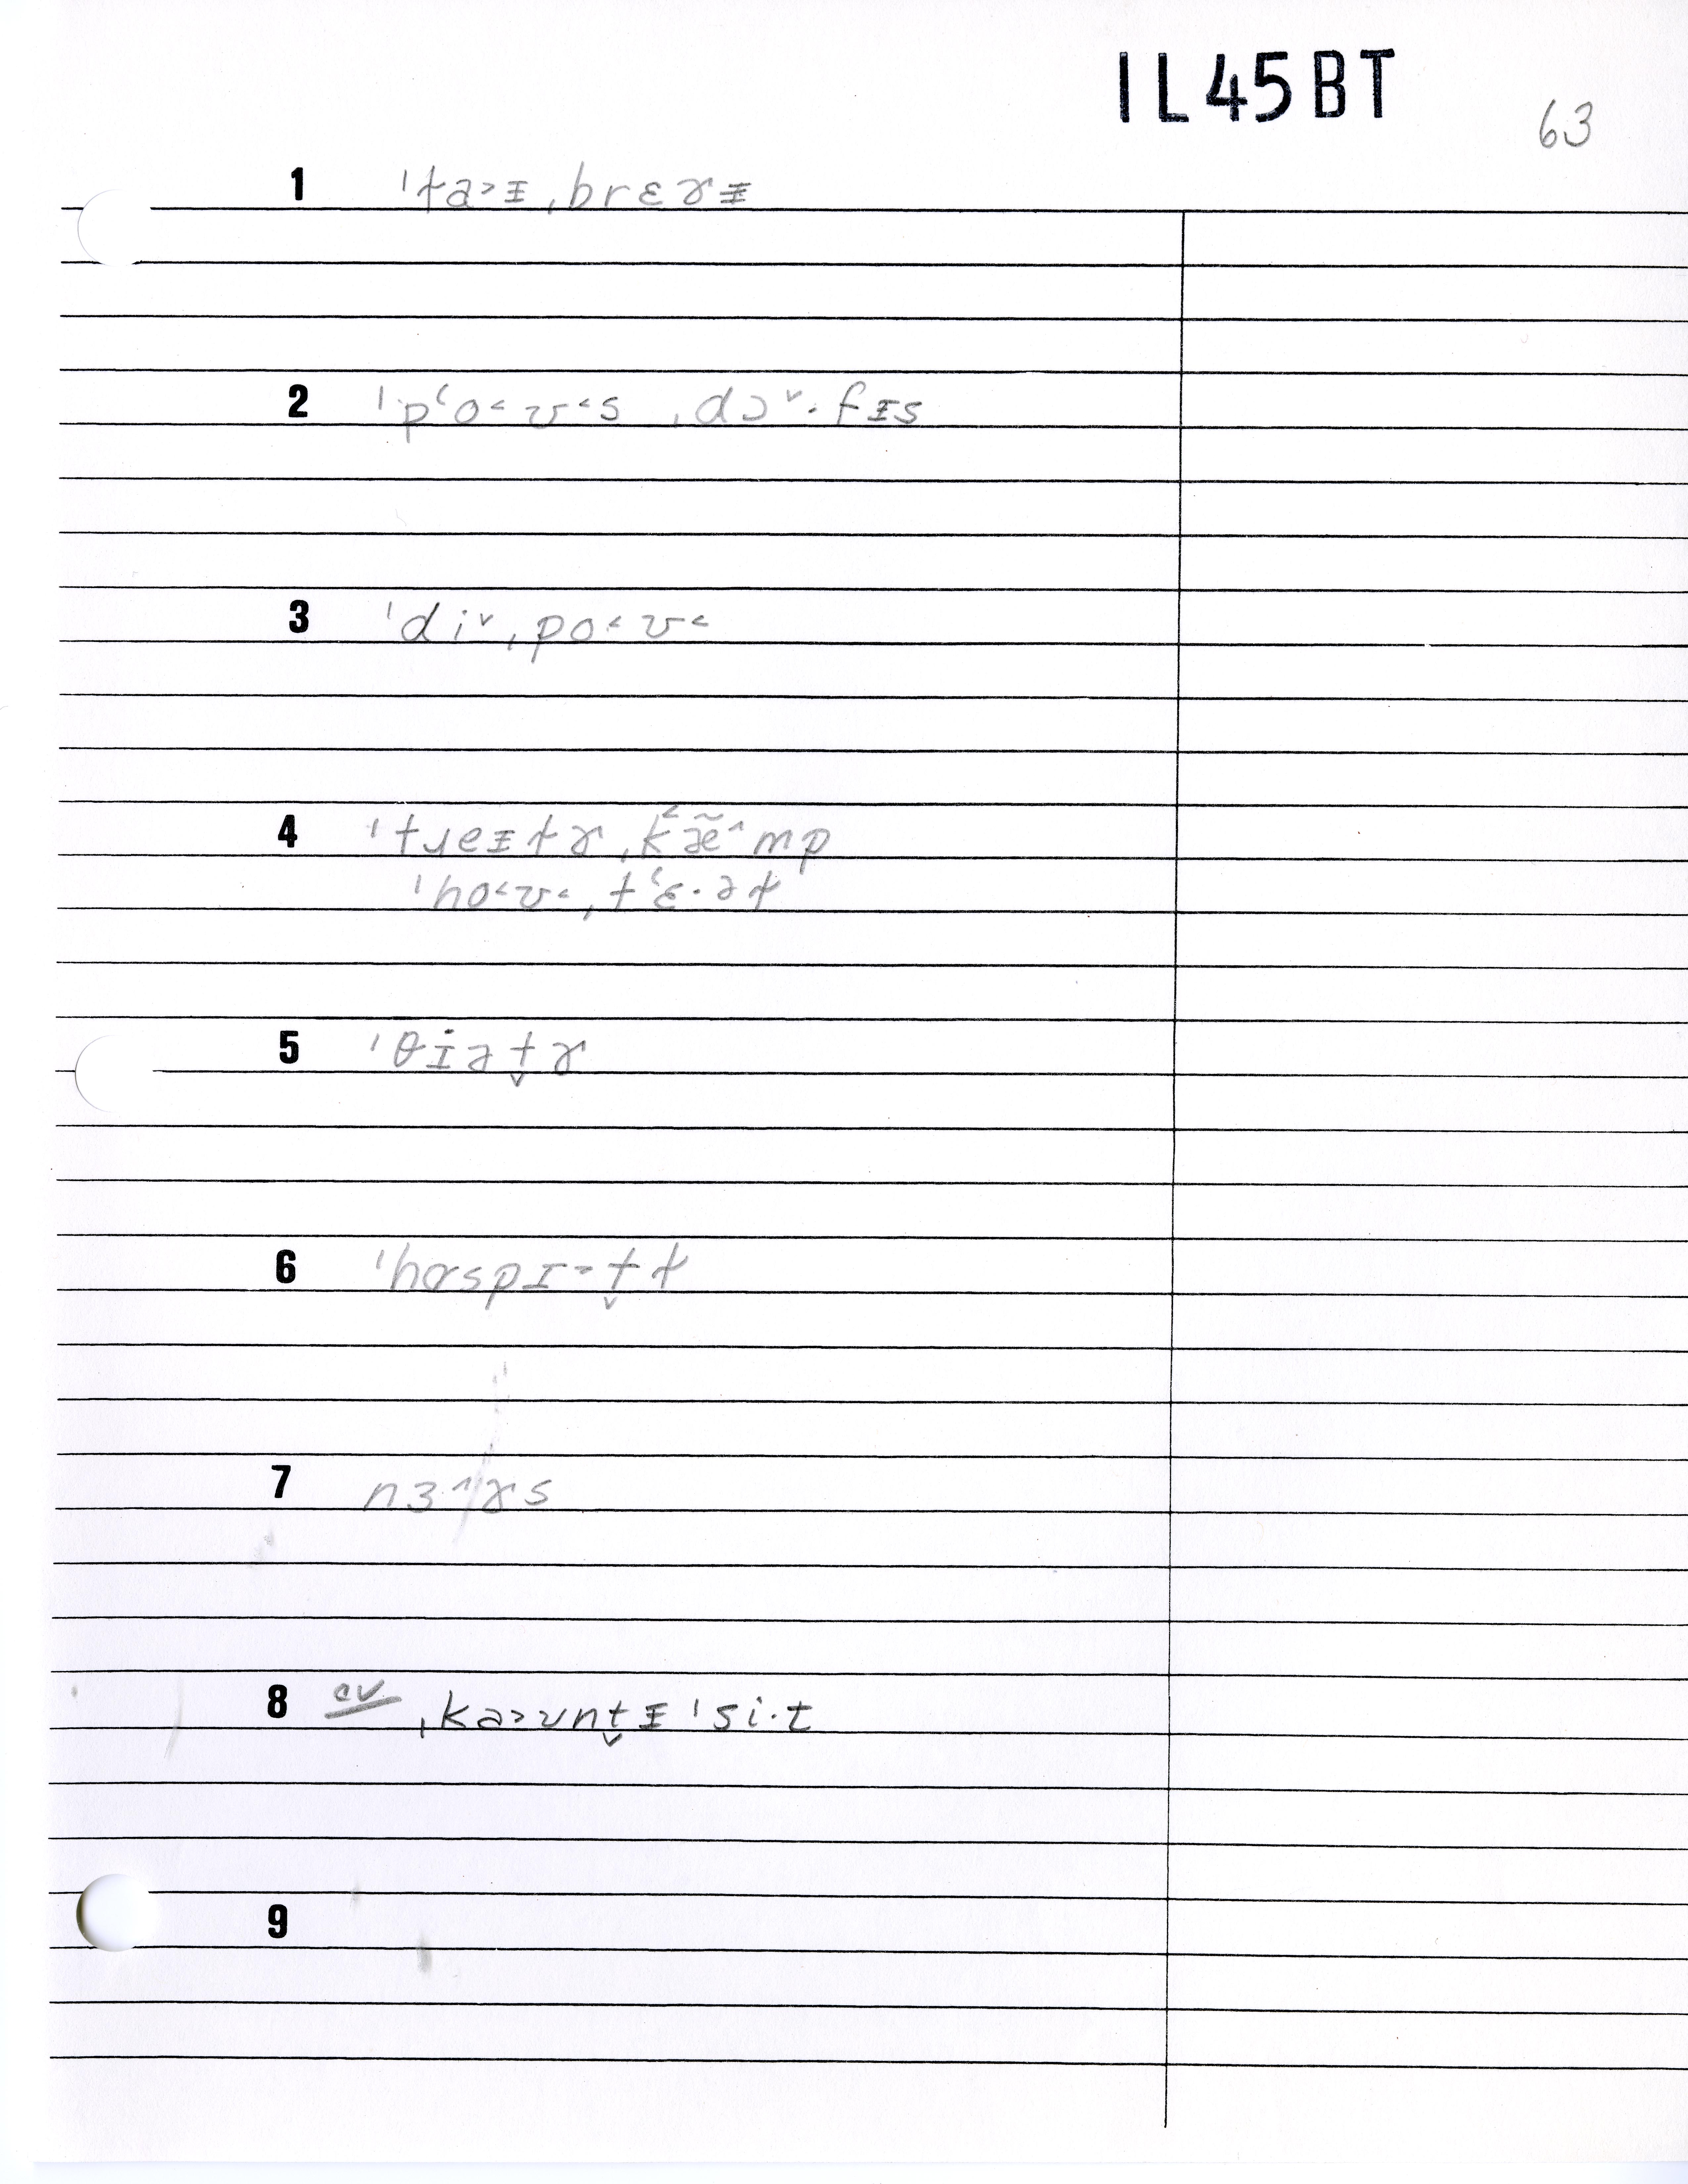 IL45BT
63
1 ˈɫa˃ɪ̵ˌbrɛɚɪ̵
2 ˈpʻo˂ʊ˂s ˌdɔˇ·fɪ̵s
3 ˈdiˇˌpo˂ʊ˂
4 ˈtɹeɪ̵ɫɚˌkʻæ̃^mp
ˈho˂ʊ˂ˌtʻɛ·əɫ
5 ˈθɪ̇ət̬ɚ
6 ˈhɑspɪ-t̬ɫ
7 nɜ^ɚs
8 cv ˌka˃ʊnt̬ɪ̵ˈsi·t
9